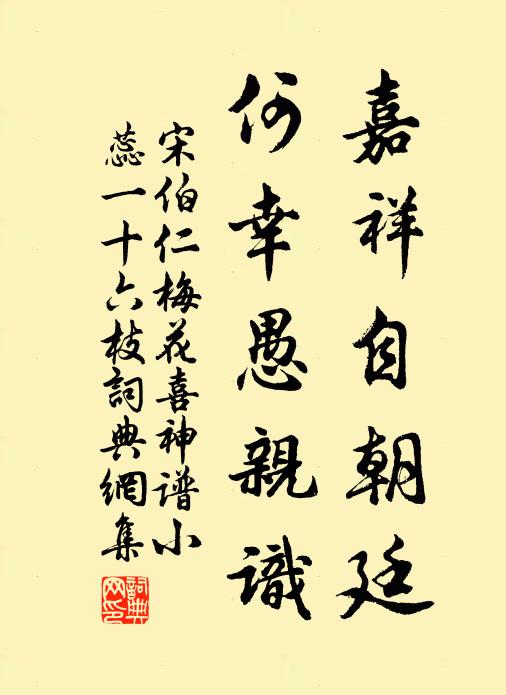 嘉祥自朝廷
何幸愚親識
宋伯仁梅花喜神谱小
蕊一十六枝詞典網集